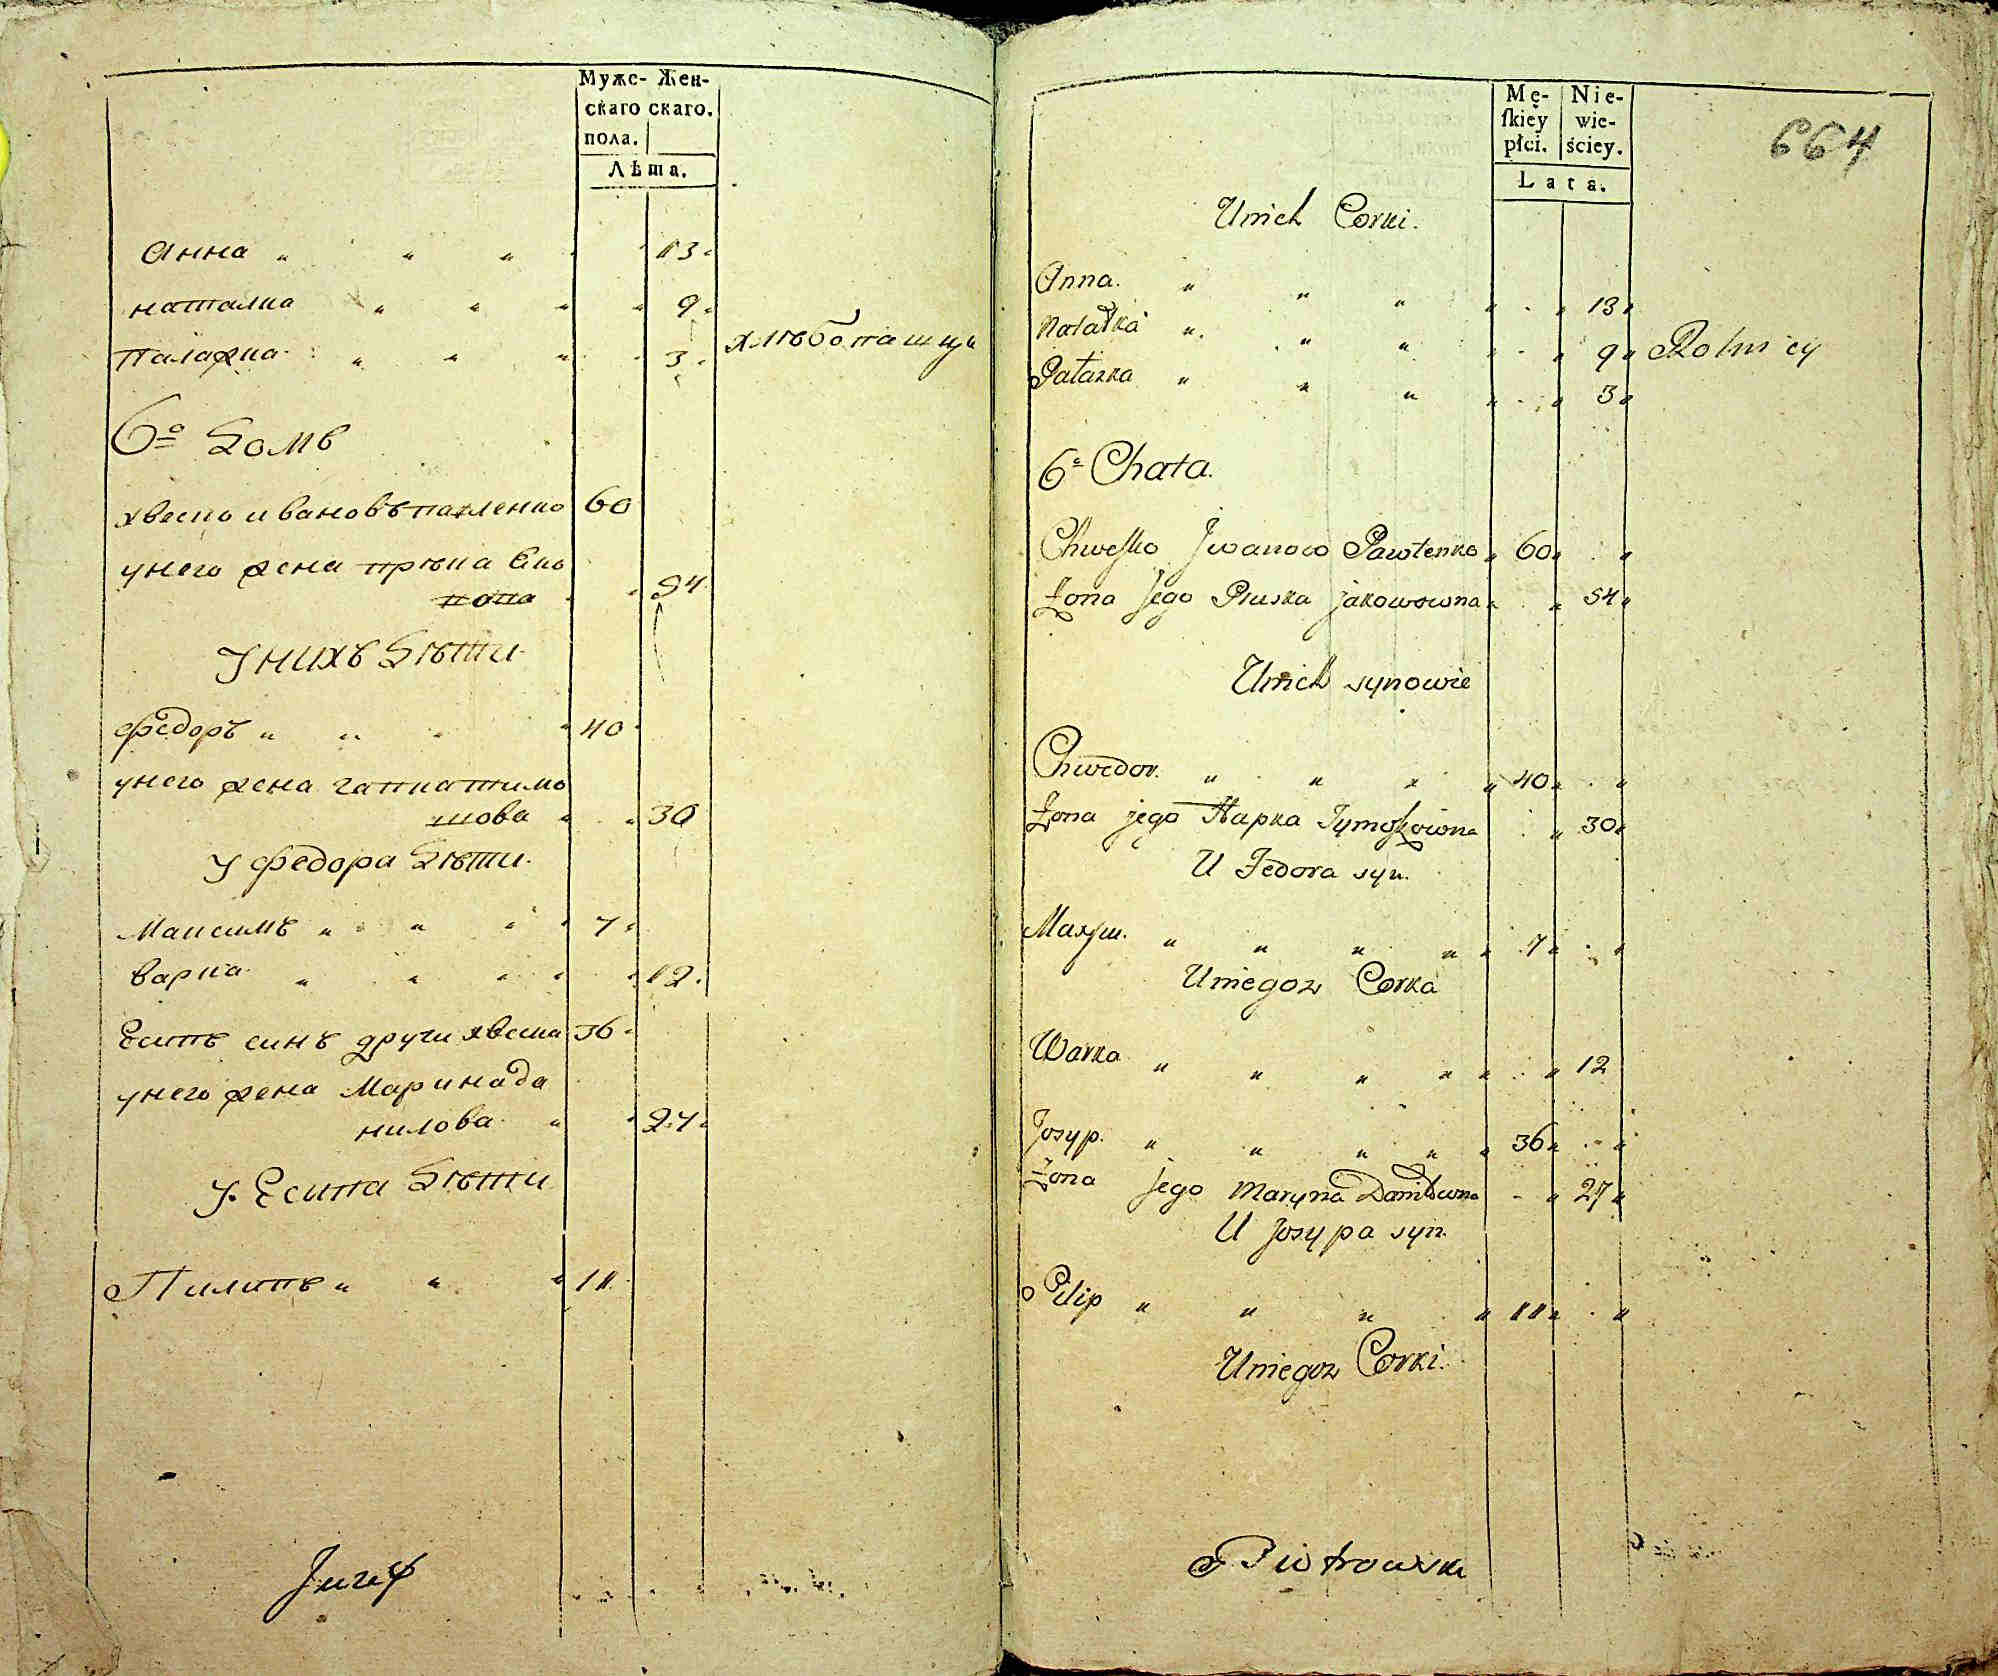 Мужс- Жен-
скаго скаго.
пола.
Лѣта.
Анна " " " " " 13 "
наталка " " " " 9 "
Палажка " " " 3 "
хлѣбопашцы
6º Домъ
хвесko ивановъ павленко 60
у него жена пріська Яко
вова " " 54
У нихъ Дѣти
Федоръ " " " " 40 "
у него жена гапка тимо
шова " " 30
У Федора Дѣти
Максимъ " " " " 7 "
варка " " " " " 12 "
Есипъ синъ други хвеска 36 "
у него жена Марина да
нилова " " 27 "
У Есипа Дѣти
Пилипъ " " " 11
Juzef
664
Mę- Nie-
skiey wie-
płci. ściey.
Lata.
Unich Corki.
Anna. " " " " " 13 "
Natałka " " " " " 9 "
Pałazka " " " " " 3 "
Rolnicy
6º Chata.
Chwesko Jwanow Pawłenko " 60 " "
Żona Jego Pruska jakowowna " " 54 "
Unich synowie
Chwedor. " " " " 40 " "
Żona jego Hapka Tymoszowna " 30 "
U Fedora syn.
Maxym. " " " " " 7 " "
Uniegoz Corka
Warka " " " " " " 12
Josyp. " " " " " 36 " "
Żona Jego Maryna Daniłowna " 27 "
U Josypa syn.
Pilip " " " " 11 " "
Uniegoz Corki.
Piotrowski